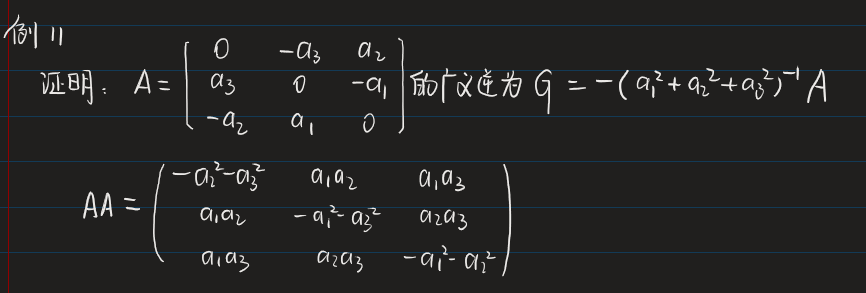 例11
证明: A = [ 0 -a₃ a₂ ; a₃ 0 -a₁ ; -a₂ a₁ 0 ] 的广义逆为 G = -(a₁²+a₂²+a₃²)⁻¹ A
AA = ( -a₂²-a₃² a₁a₂ a₁a₃ ; a₁a₂ -a₁²-a₃² a₂a₃ ; a₁a₃ a₂a₃ -a₁²-a₂² )